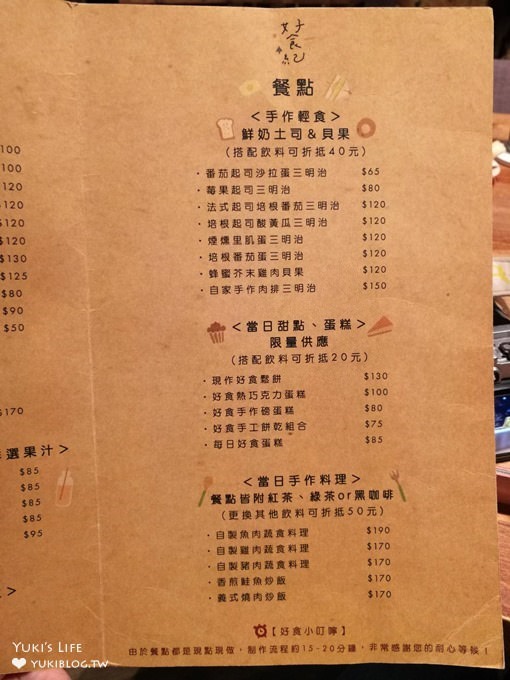 好食紀
餐點
<手作輕食>
鮮奶土司&貝果
(搭配飲料可折抵40元)
・番茄起司沙拉蛋三明治 $65
・莓果起司三明治 $80
・法式起司培根番茄三明治 $120
・培根起司酸黃瓜三明治 $120
・煙燻里肌蛋三明治 $120
・培根番茄蛋三明治 $120
・蜂蜜芥末雞肉貝果 $120
・自家手作肉排三明治 $150
<當日甜點、蛋糕>
限量供應
(搭配飲料可折抵20元)
・現作好食鬆餅 $130
・好食熱巧克力蛋糕 $100
・好食手作磅蛋糕 $80
・好食手工餅乾組合 $75
・每日好食蛋糕 $85
<當日手作料理>
餐點皆附紅茶、綠茶or黑咖啡
(更換其他飲料可折抵50元)
・自製魚肉蔬食料理 $190
・自製雞肉蔬食料理 $170
・自製豬肉蔬食料理 $170
・香煎鮭魚炒飯 $170
・義式燒肉炒飯 $170
【好食小叮嚀】
由於餐點都是現點現做，制作流程約15-20分鐘，非常感謝您的耐心等候！
100
100
120
120
120
120
$130
$125
$80
$90
$50
$170
選果汁>
$85
$85
$85
$85
$95
>
YUKI'S LIFE
YUKIBLOG.TW